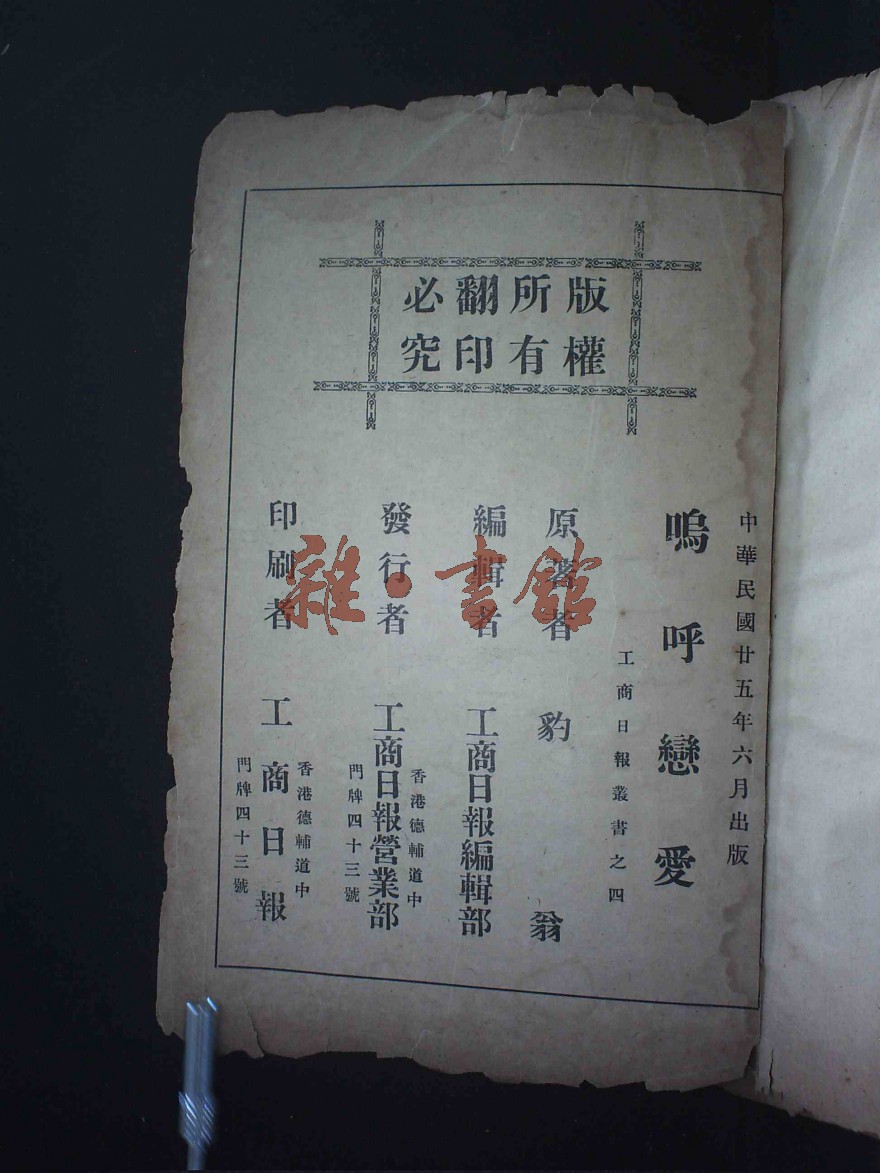 版權
所有
翻印
必究
中華民國廿五年六月出版
嗚呼戀愛
工商日報叢書之四
原著者 豹翁
編輯者 工商日報編輯部
發行者 工商日報營業部
香港德輔道中
門牌四十三號
印刷者 工商日報
香港德輔道中
門牌四十三號
雜·書館